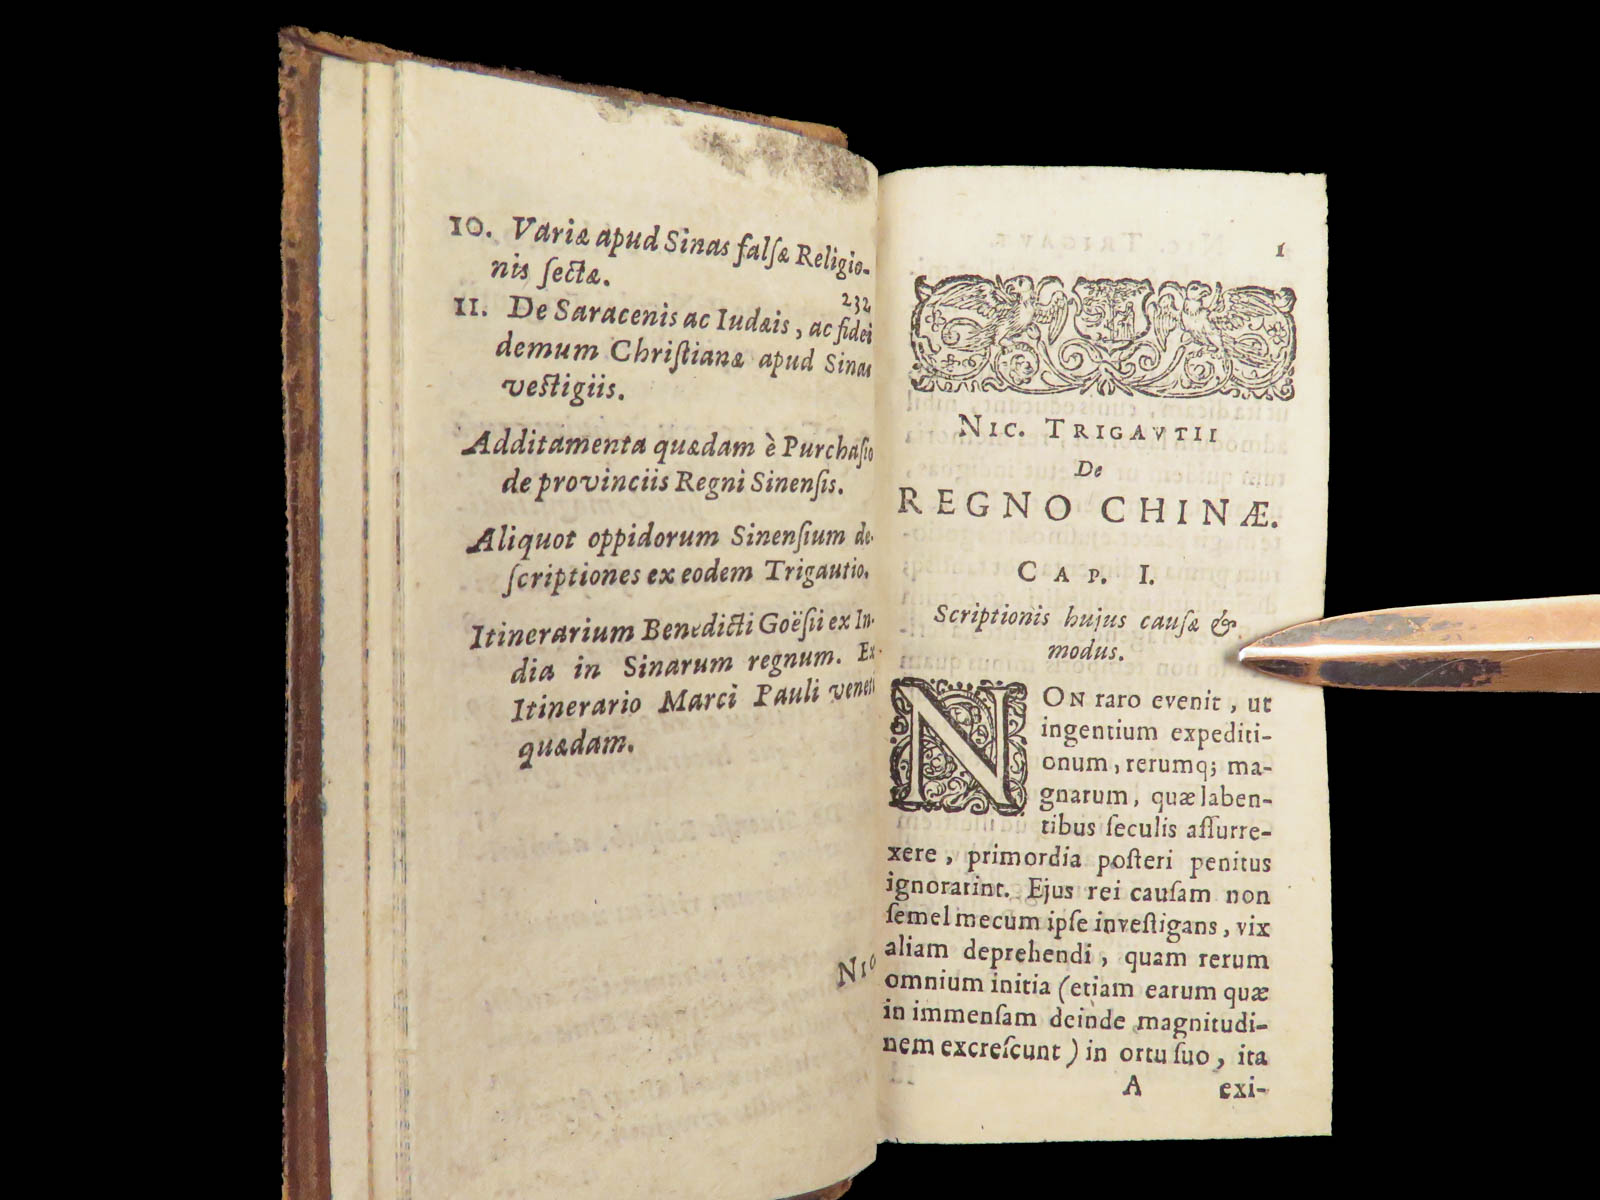 10. Variæ apud Sinas falſæ Religio-
nis ſectæ.
232
11. De Saracenis ac Iudæis, ac fidei
demum Chriſtianæ apud Sinas
veſtigiis.
Additamenta quædam è Purchaſio
de provinciis Regni Sinenſis.
Aliquot oppidorum Sinenſium de-
ſcriptiones ex eodem Trigautio.
Itinerarium Benedicti Goëſii ex In-
dia in Sinarum regnum. Ex
Itinerario Marci Pauli veneti
quædam.
1
NIC. TRIGAVTII
De
REGNO CHINÆ.
CAP. I.
Scriptionis hujus cauſæ &
modus.
NON raro evenit, ut
ingentium expediti-
onum, rerumq; ma-
gnarum, quæ laben-
tibus ſeculis aſſurre-
xere, primordia poſteri penitus
ignorarint. Ejus rei cauſam non
ſemel mecum ipſe inveſtigans, vix
aliam deprehendi, quam rerum
omnium initia (etiam earum quæ
in immenſam deinde magnitudi-
nem excreſcunt) in ortu ſuo, ita
A exi-